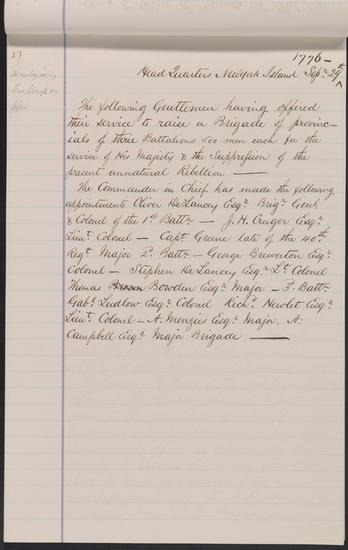 27
1776 —
Head Quarters Newyork Island Sepr. 29th
The following Gentlemen having offered
their service to raise a Brigade of provinc-
ials of three Battalions 500 men each for the
service of His Majesty & the Suppression of the
present unnatural Rebellion —
The Commander in Chief has made the following
appointments Oliver DeLancey Esqr. Brigr. Genl.
& Colonel of the 1st Battn. — J. H. Cruger Esqr.
Lieut. Colonel — Capt Greene late of the 40th.
Regt. Major 2. Battn. — George Brewerton Esqr.
Colonel — Stephen DeLancey Esqr. Lt. Colonel
Thomas Bowden Esqr. Major — 3. Battn.
Gabl. Ludlow Esqr. Colonel Richd. Hewlet Esqr.
Lieut. Colonel — A. Menzies Esqr. Major. A.
Campbell Esqr. Major Brigade —